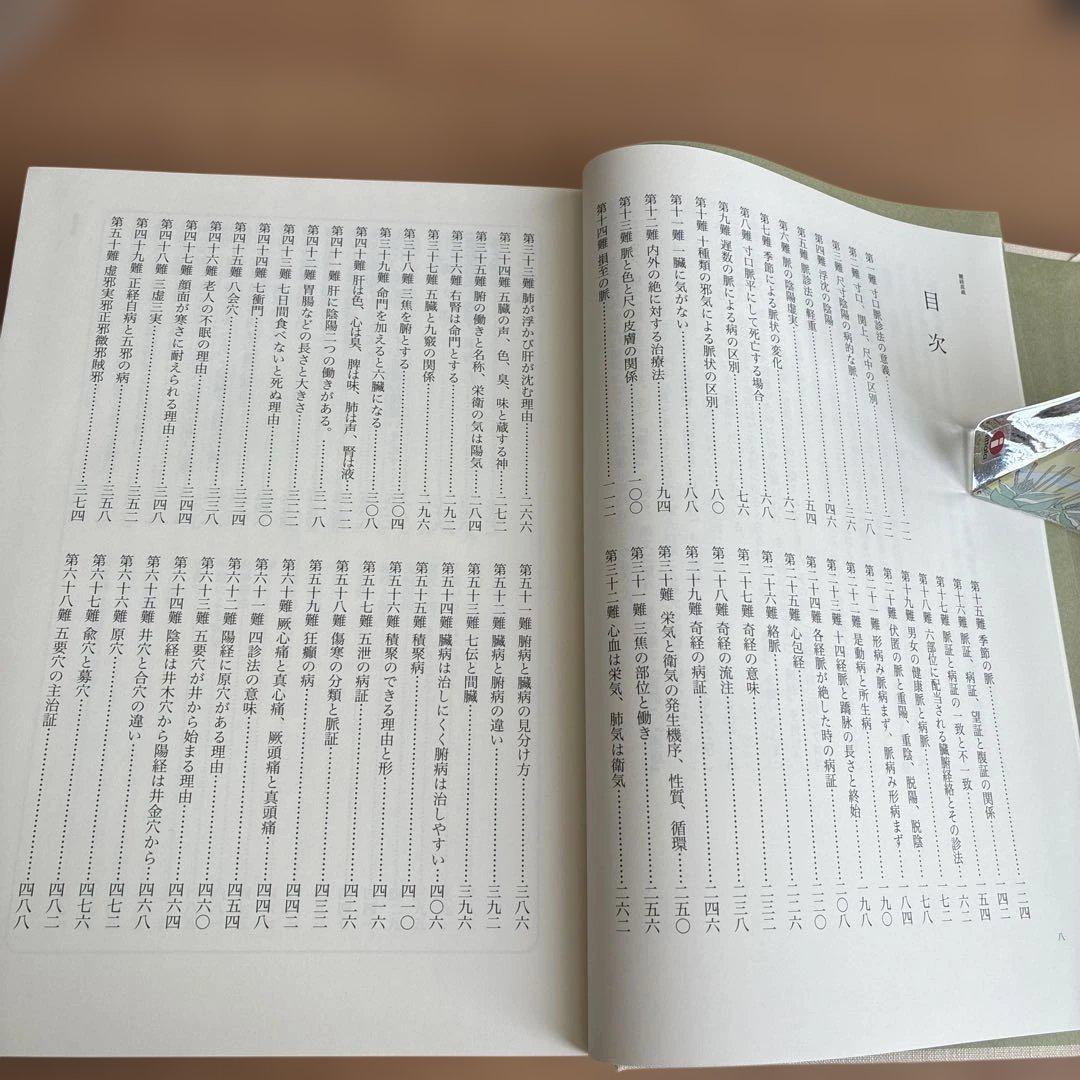 難経真義
目次
第一難 寸口脈診法の意義……一二
第二難 寸口、関上、尺中の区別……二八
第三難 尺寸陰陽の病的な脈……三六
第四難 浮沈の陰陽……四六
第五難 脈診法の軽重……五四
第六難 脈の陰陽虚実……六二
第七難 季節による脈状の変化……六八
第八難 寸口脈平にして死亡する場合……七六
第九難 遅数の脈による病の区別……八〇
第十難 十種類の邪気による脈状の区別……八八
第十一難 臓に気がない……
第十二難 内外の絶に対する治療法……九四
第十三難 脈と色と尺の皮膚の関係……一〇〇
第十四難 損至の脈……一一二
第十五難 季節の脈……一二四
第十六難 脈証、病証、望証と腹証の関係……一四二
第十七難 脈証と病証の一致と不一致……一五四
第十八難 六部位に配当される臓腑経絡とその診法……一六二
第十九難 男女の健康脈と病脈……一七八
第二十難 伏匿の脈と重陽、重陰、脱陽、脱陰……一八四
第二十一難 形病み脈病まず、脈病み形病まず……一九〇
第二十二難 是動病と所生病……一九八
第二十三難 十四経脈と蹻脈の長さと終始……二〇八
第二十四難 各経脈が絶した時の病証……二二〇
第二十五難 心包経……二二六
第二十六難 絡脈……二三二
第二十七難 奇経の意味……二三八
第二十八難 奇経の流注……二四六
第二十九難 奇経の病証……
第三十難 栄気と衛気の発生機序、性質、循環……二五〇
第三十一難 三焦の部位と働き……二五六
第三十二難 心血は栄気、肺気は衛気……二六二
八
第三十三難 肺が浮かび肝が沈む理由……二六六
第三十四難 五臓の声、色、臭、味と蔵する神……二七二
第三十五難 腑の働きと名称、栄衛の気は陽気……二八四
第三十六難 右腎は命門とする……二九二
第三十七難 五臓と九竅の関係……二九六
第三十八難 三焦を腑とする……三〇四
第三十九難 命門を加えると六臓になる……三〇八
第四十難 肝は色、心は臭、脾は味、肺は声、腎は液……三一二
第四十一難 肝に陰陽二つの働きがある。……三一八
第四十二難 胃腸などの長さと大きさ……三二二
第四十三難 七日間食べないと死ぬ理由……三三〇
第四十四難 七衝門……三三四
第四十五難 八会穴……三三八
第四十六難 老人の不眠の理由……三四四
第四十七難 顔面が寒さに耐えられる理由……三四八
第四十八難 三虚三実……三五二
第四十九難 正経自病と五邪の病……三五八
第五十難 虚邪実邪正邪微邪賊邪……三七四
第五十一難 腑病と臓病の見分け方……三八六
第五十二難 臓病と腑病の違い……三九二
第五十三難 七伝と間臓……三九六
第五十四難 臓病は治しにくく腑病は治しやすい……四〇六
第五十五難 積聚病……四一〇
第五十六難 積聚のできる理由と形……四一六
第五十七難 五泄の病証……四二六
第五十八難 傷寒の分類と脈証……四三二
第五十九難 狂癲の病……四四二
第六十難 厥心痛と真心痛、厥頭痛と真頭痛……四四八
第六十一難 四診法の意味……四五四
第六十二難 陽経に原穴がある理由……四六〇
第六十三難 五要穴が井から始まる理由……四六四
第六十四難 陰経は井木穴から陽経は井金穴から……四六八
第六十五難 井穴と合穴の違い……四七二
第六十六難 原穴……四七六
第六十七難 兪穴と募穴……四八二
第六十八難 五要穴の主治証……四八八